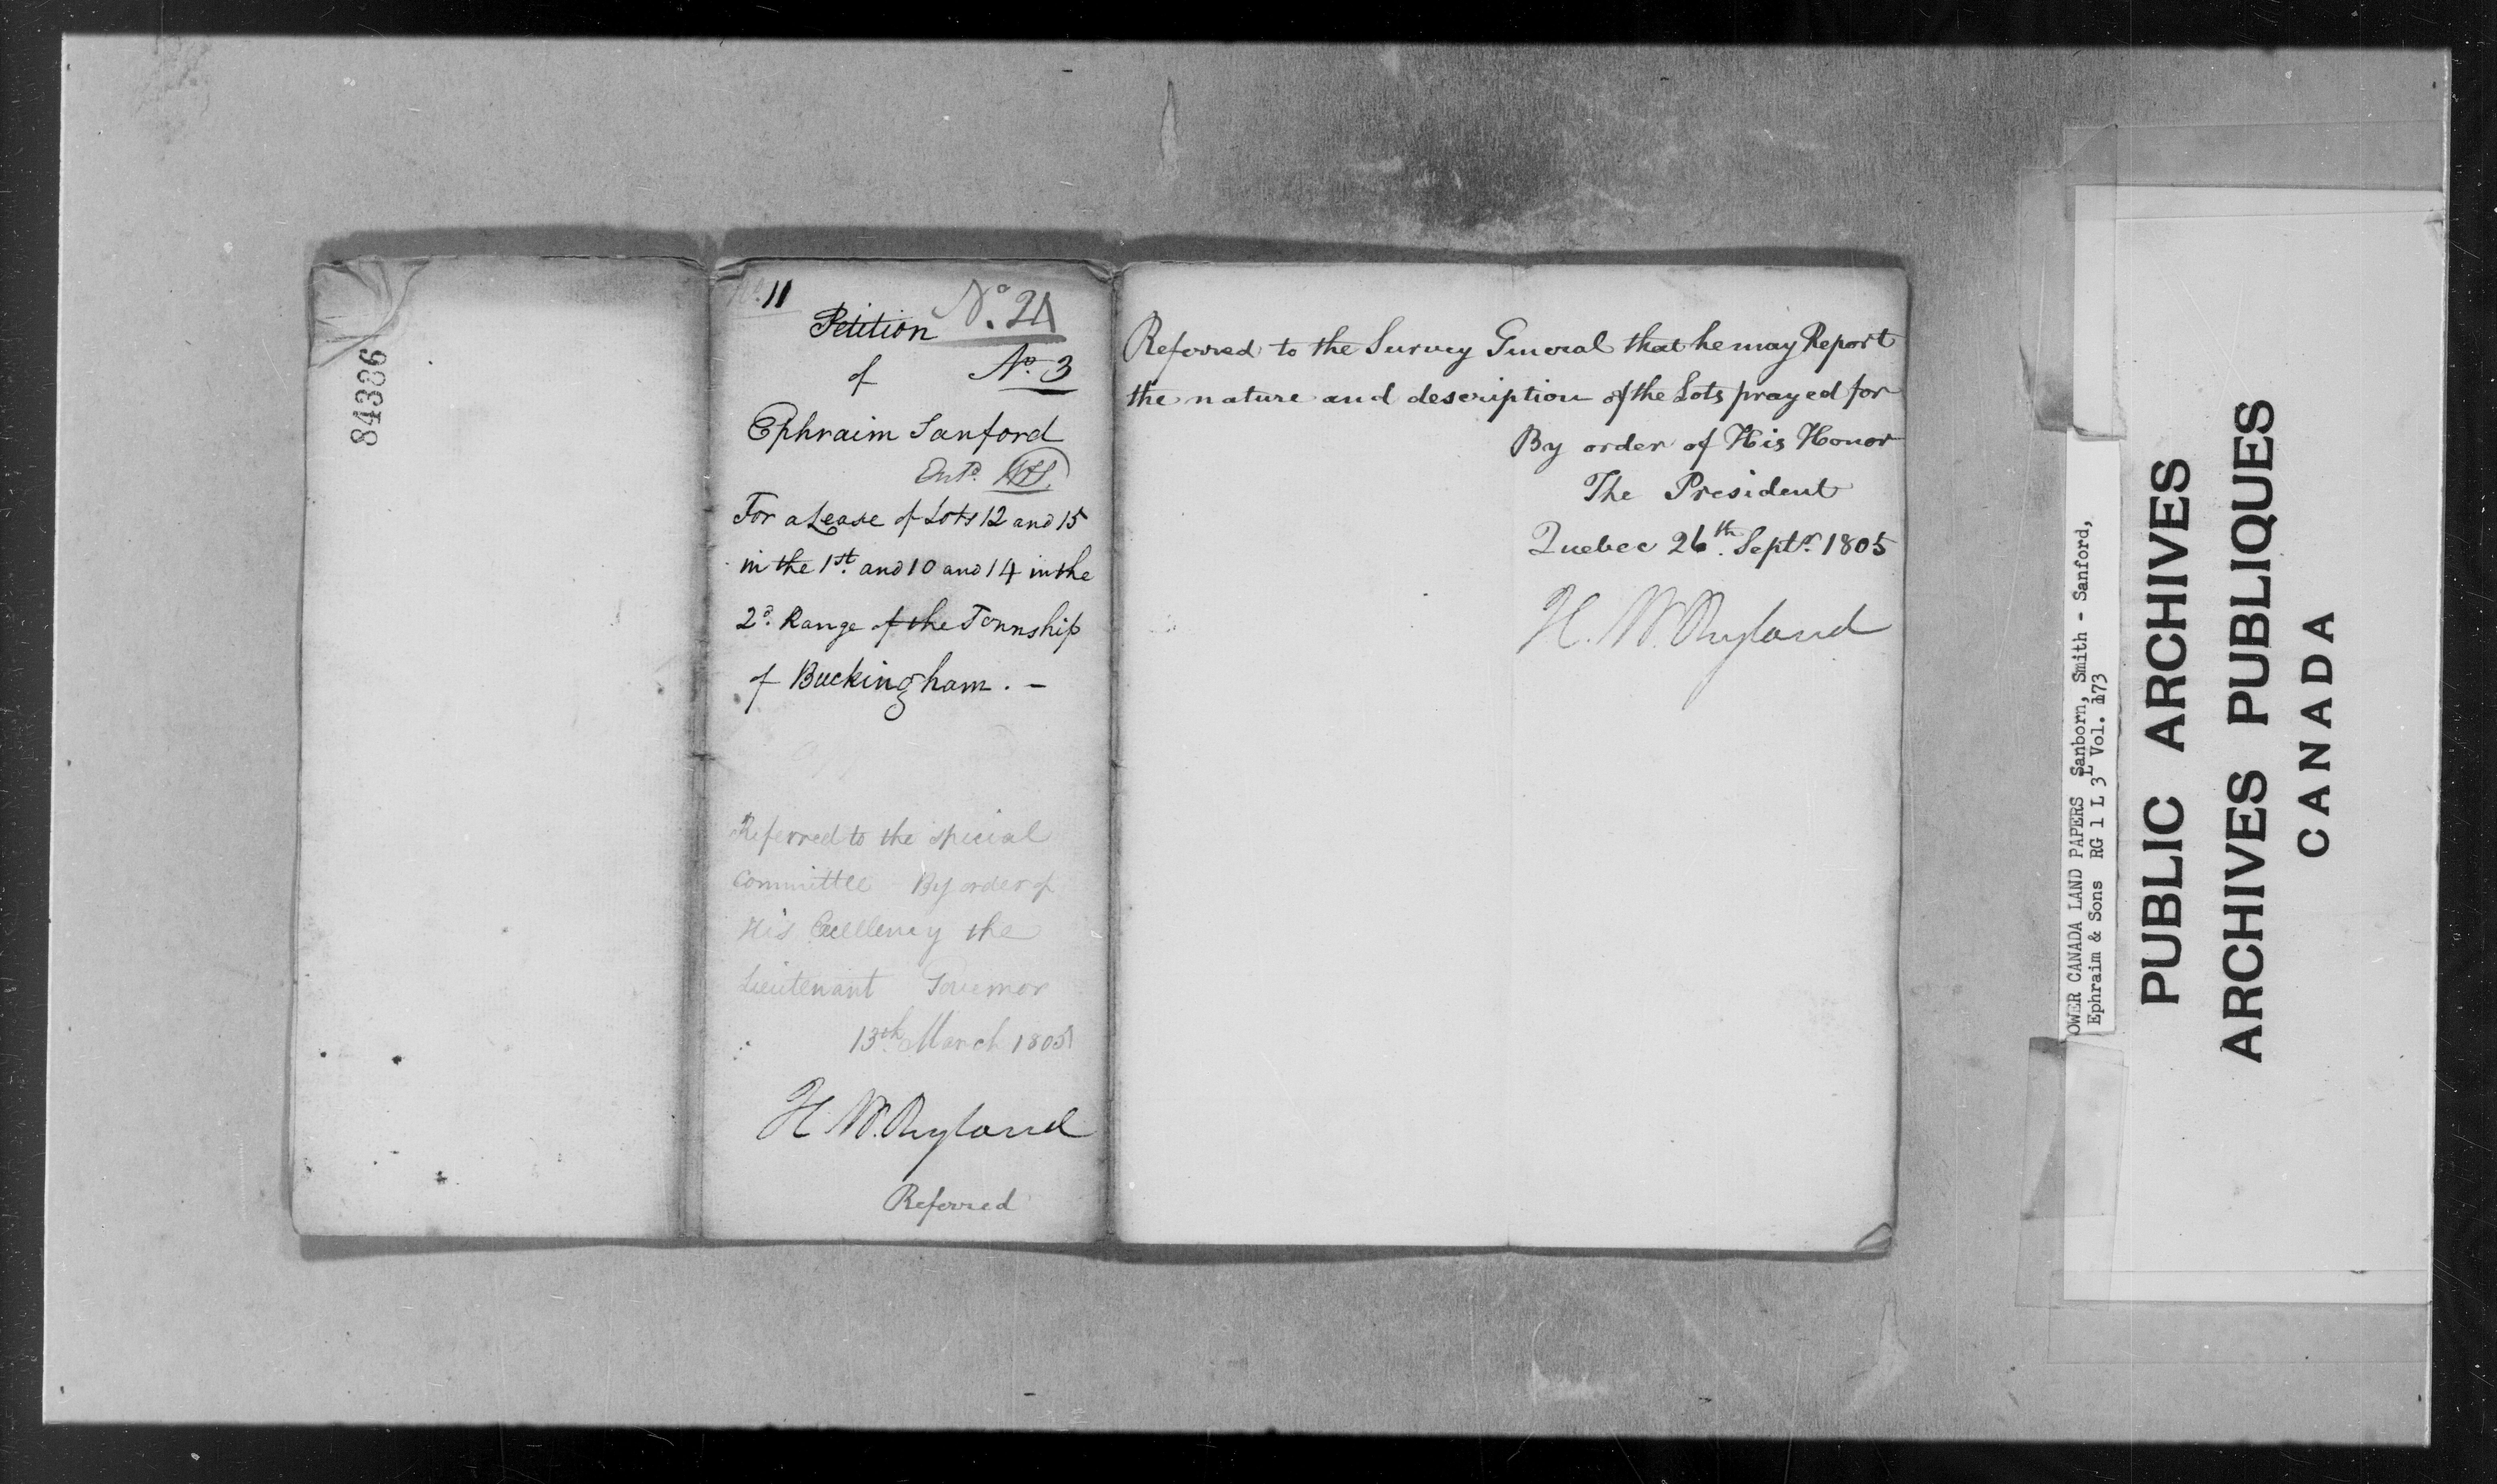 84386
No. 11
No. 21
Petition
No. 3
of
Ephraim Sanford
Entd.
For a Lease of Lots 12 and 15
in the 1st. and 10 and 14 in the
2d. Range of the Township
of Buckingham. -
Referred to the special
Committee - By order of
His Excellency the
Lieutenant Governor
13th. March 1805
H W. Ryland
Referred
Referred to the Survey General that he may Report
the nature and description of the Lots prayed for
By order of His Honor
The President
Quebec 26th. Septr. 1805
H. W. Ryland
OWER CANADA LAND PAPERS Sanborn, Smith - Sanford,
Ephraim & Sons RG 1 L 3 L Vol. 173
PUBLIC ARCHIVES
ARCHIVES PUBLIQUES
CANADA